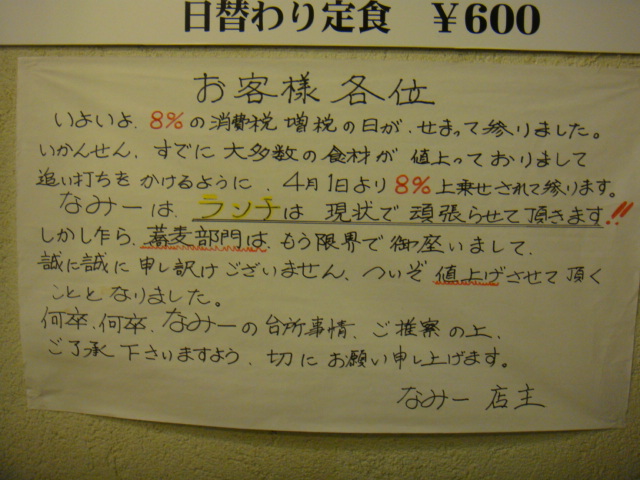 日替わり定食 ￥600
お客様各位
いよいよ、8%の消費税増税の日が、せまって参りました。
いかんせん、すでに大多数の食材が値上っておりまして
追い打ちをかけるように、4月1日より8%上乗せされて参ります。
なみーは、ランチは現状で頑張らせて頂きます!!
しかし乍ら、蕎麦部門は、もう限界で御座いまして、
誠に誠に申し訳けございません、ついぞ値上げさせて頂く
こととなりました。
何卒、何卒、なみーの台所事情、ご推察の上、
ご了承下さいますよう、切にお願い申し上げます。
なみー店主